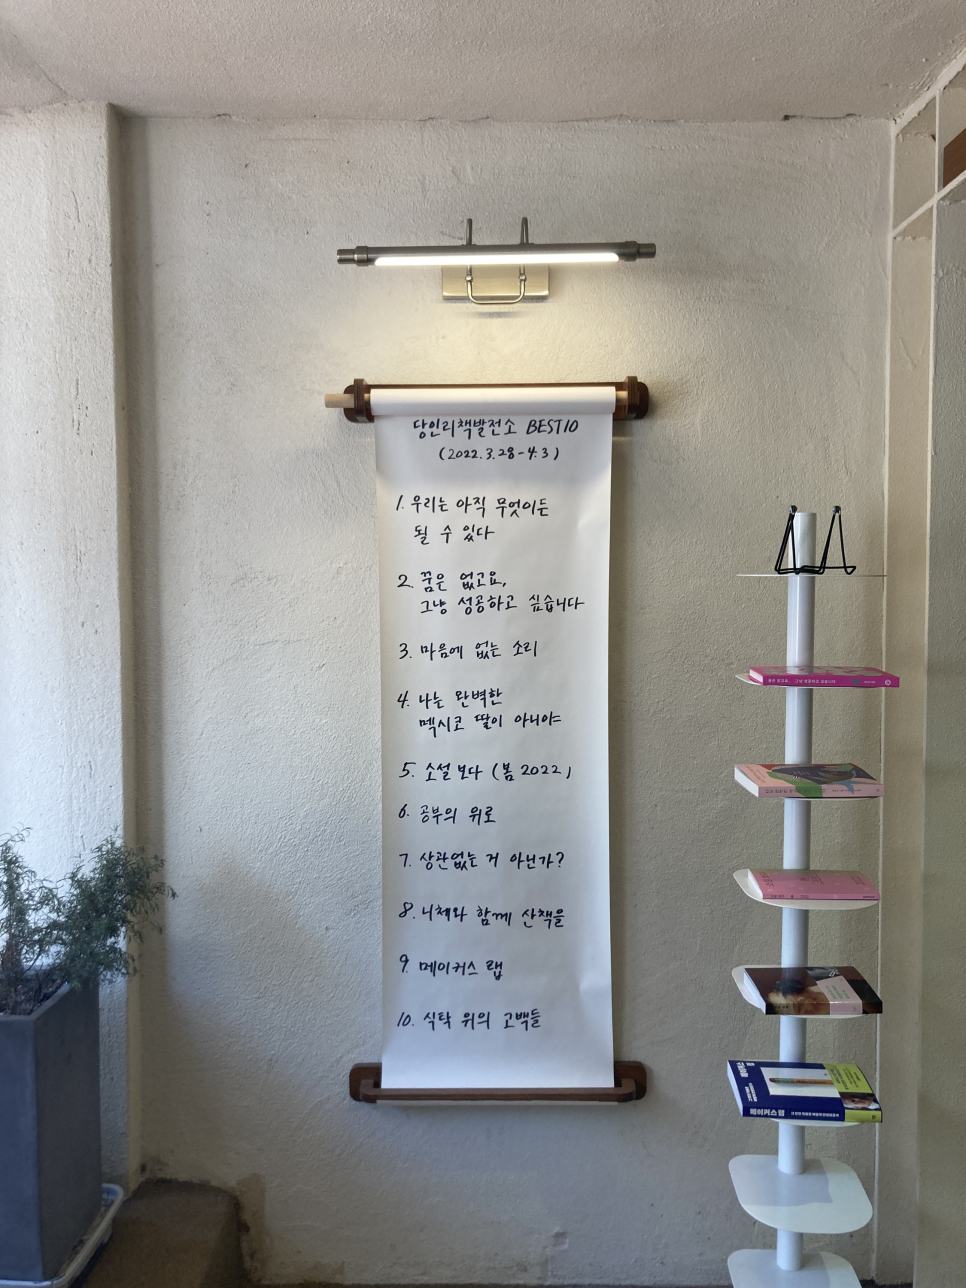 당인리책발전소 BEST10
(2022.3.28-4.3)
1. 우리는 아직 무엇이든
될 수 있다
2. 꿈은 없고요,
그냥 성공하고 싶습니다
3. 마음에 없는 소리
4. 나는 완벽한
멕시코 딸이 아니야
5. 소설 보다 (봄 2022)
6. 공부의 위로
7. 상관없는 거 아닌가?
8. 니체와 함께 산책을
9. 메이커스 랩
10. 식탁 위의 고백들
메이커스 랩